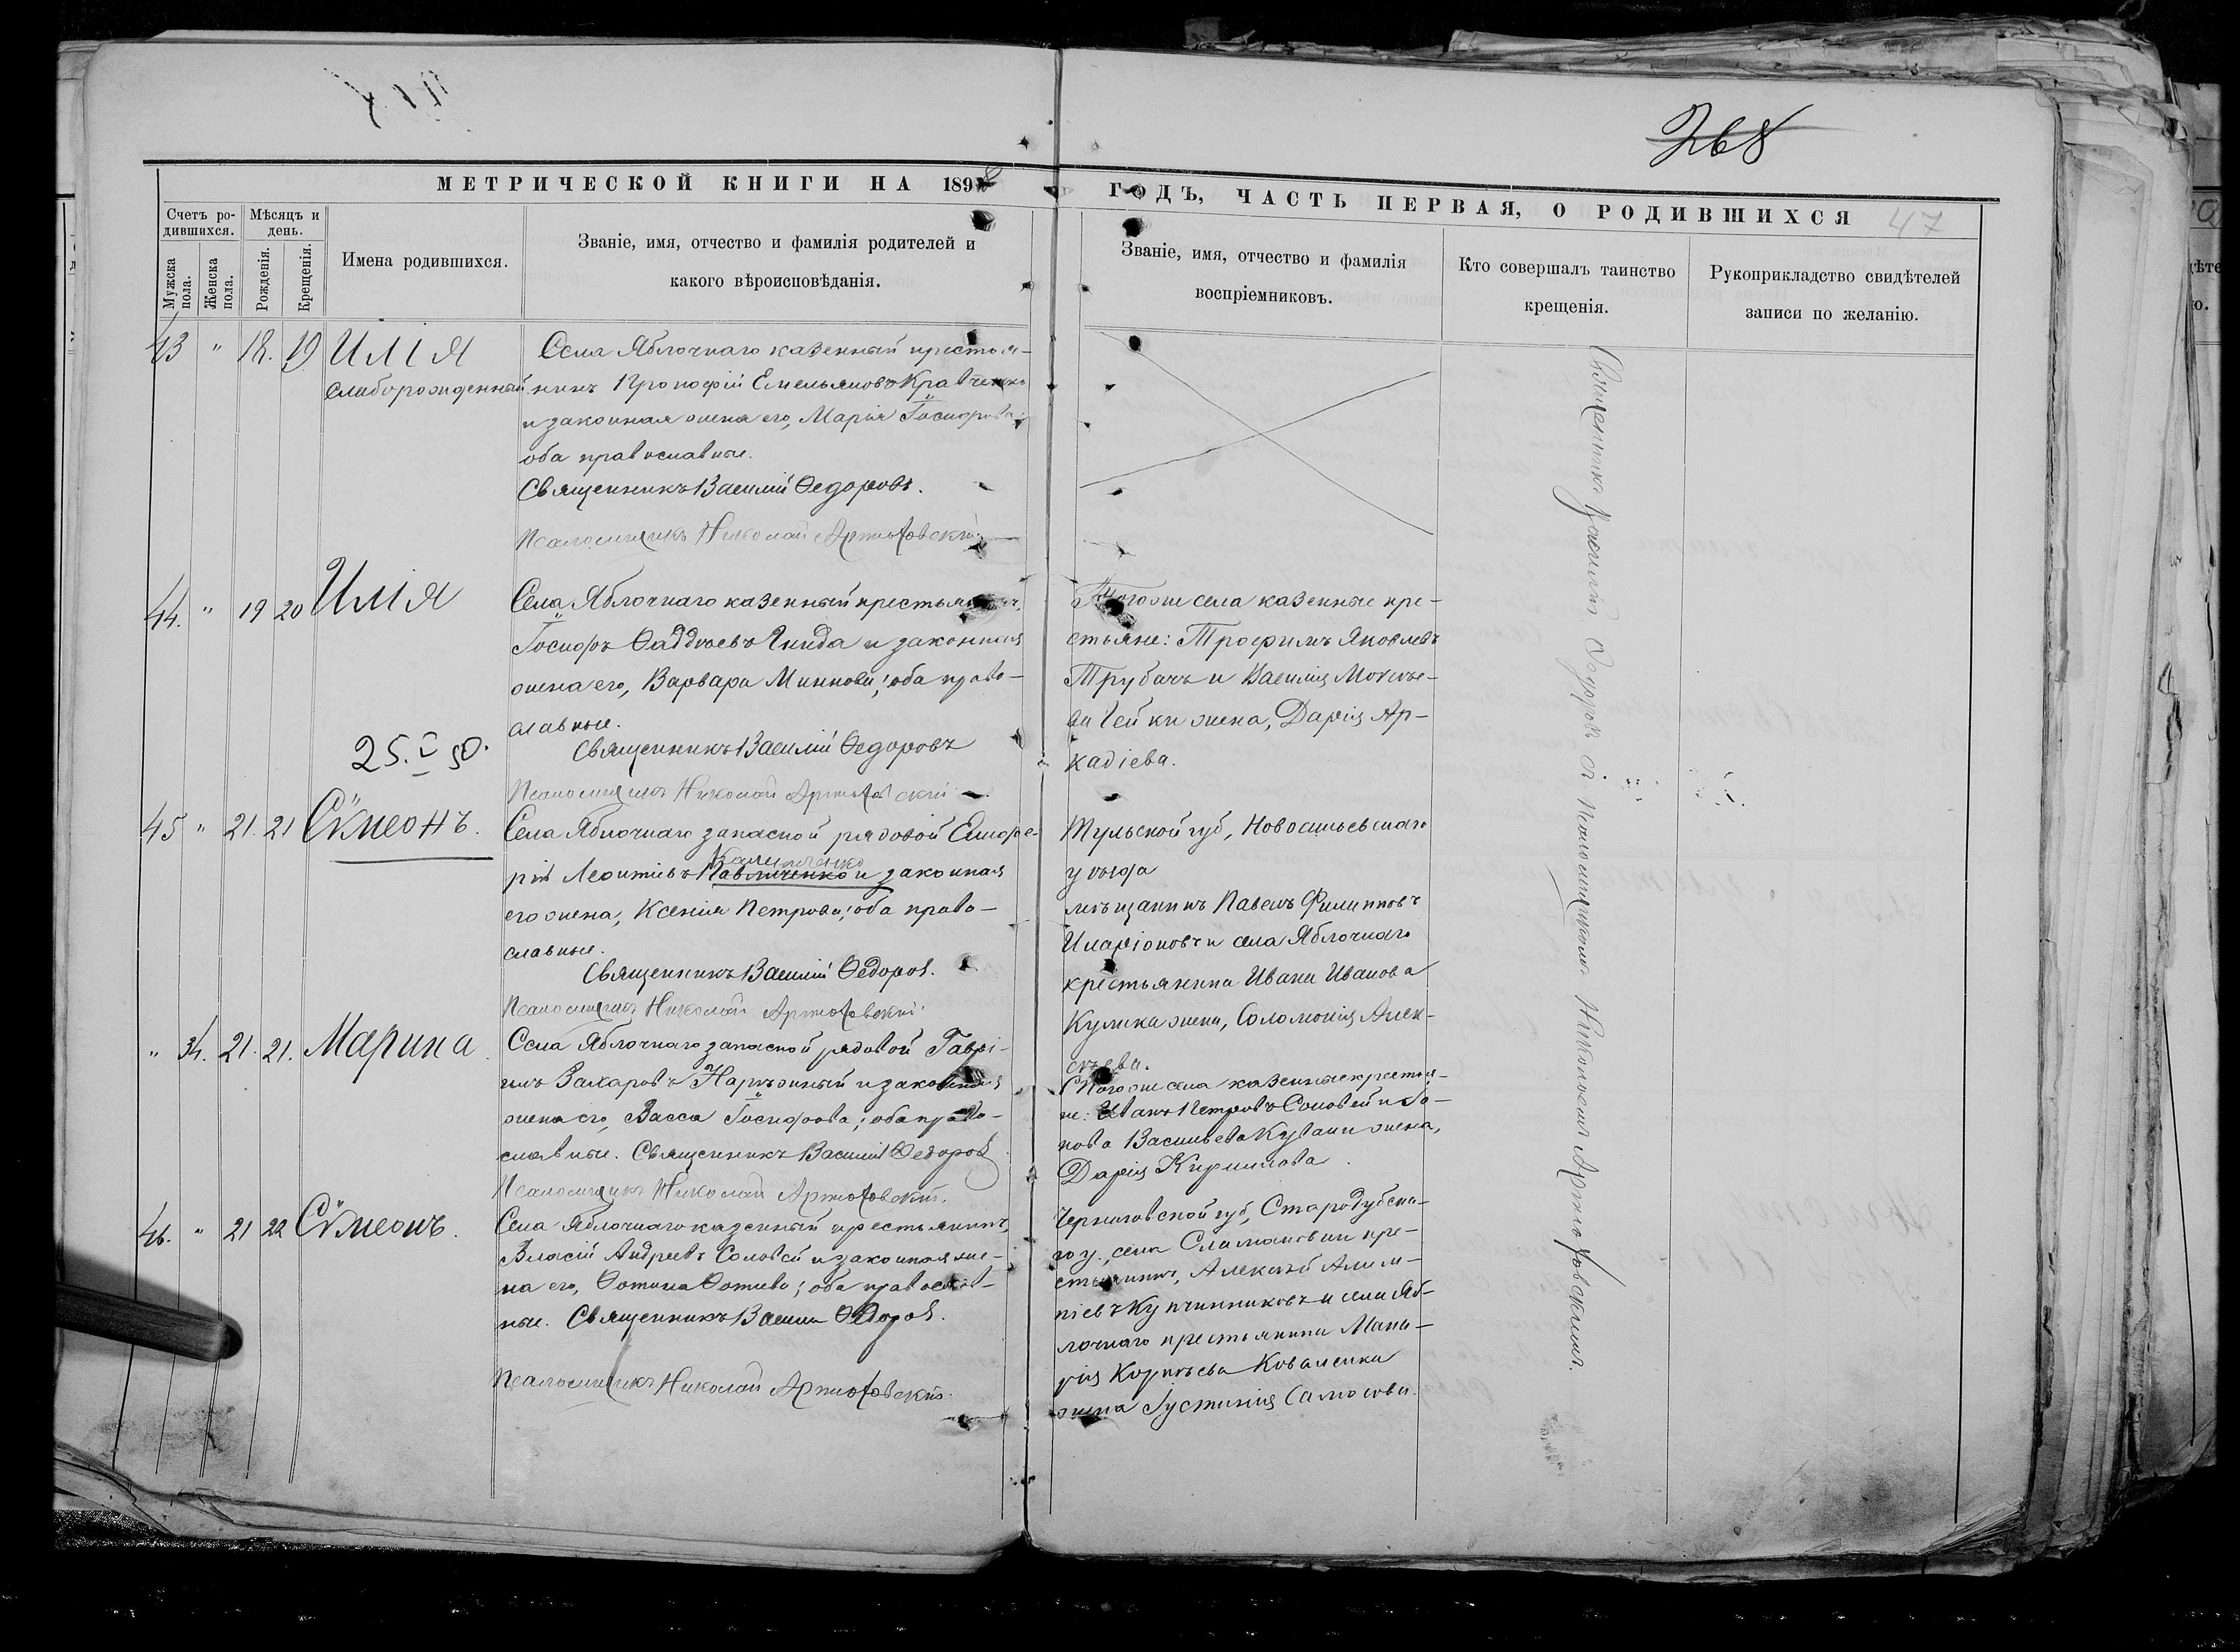 268
47
МЕТРИЧЕСКОЙ КНИГИ НА 189
ГОДЪ, ЧАСТЬ ПЕРВАЯ, О РОДИВШИХСЯ
Счетъ ро-
дившихся.
Мужска
пола.
Женска
пола.
Мѣсяцъ и
день.
Рожденія.
Крещенія.
Имена родившихся.
Званіе, имя, отчество и фамилія родителей и
какого вѣроисповѣданія.
Званіе, имя, отчество и фамилія
воспріемниковъ.
Кто совершалъ таинство
крещенія.
Рукоприкладство свидѣтелей
записи по желанію.
43 " 18. 19 Илія
Слаборожденный
Села Яблочнаго казенный крестья-
нинъ Прокофій Емельяновъ Кравченко
и законная жена его, Марія Іосифова;
оба православные.
Священникъ Василій Ѳедоровъ.
Псаломщикъ Николай Артюховскій
44. " 19 20 Илія
Села Яблочнаго казенный крестьянинъ,
Іосифъ Ѳаддѣевъ Гнида и законная
жена его, Варвара Минова; оба право-
славные.
Священникъ Василій Ѳедоровъ
Псаломщикъ Николай Артюховскій
Того же села казенные кре-
стьяне: Трофимъ Яковлевъ
Трубачъ и Василія Моѵсѣе-
ва Гейки жена, Дарія Ар-
кадіева.
25.I 50.
45 " 21. 21 Сѵмеонъ.
Села Яблочнаго запасной рядовой Елифе-
рій Леонтіевъ Павличенко и законная
Калиниченко
его жена, Ксенія Петрова; оба право-
славные.
Священникъ Василій Ѳедоров.
Псаломщикъ Николай Артюховскій
Тульской губ, Новосильевскаго
уѣзда
мѣщанинъ Павелъ Филиповъ
Иларіоновъ и села Яблочнаго
крестьянина Ивана Иванова
Кулика жена, Соломонія Алек-
сѣева.
" 34. 21. 21. Марина
Села Яблочнаго запасной рядовой Гаврі-
илъ Захаровъ Нарѣжный и законная
жена его, Васса Іосифова; оба право-
славные. Священникъ Василій Ѳедоров
Псаломщикъ Николай Артюховскій.
Того же села казенные крестья-
не: Иванъ Петровъ Соловей и Іа-
кова Васильева Кувани жена,
Дарія Кирилова.
46. " 21 22 Сѵмеонъ.
Села Яблочнаго казенный крестьянинъ,
Власій Андреевъ Соловей и законная же-
на его, Фотина Фотиева; оба православ-
ные. Священникъ Василій Ѳедоров.
Псаломщикъ Николай Артюховскій.
Черниговской губ, Стародубска-
го у., села крe-
стьянинъ, Алексѣй Алим-
піевъ Купчинниковъ и села Яб-
лочнаго крестьянина Мака-
рія Корнѣева Коваленки
жена Іустинія Самсонова.
Священникъ Василій Ѳедоровъ съ Псаломщикомъ Николаемъ Артюховскимъ.